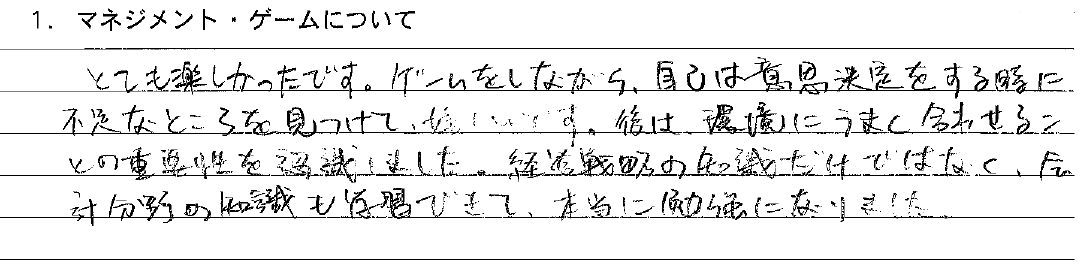 1. マネジメント・ゲームについて
とても楽しかったです。ゲームをしながら、自己は意思決定をする時に
不足なところを見つけて、嬉しいです。後は、環境にうまく合わせるこ
との重要性を認識しました。経営戦略の知識だけではなく、会
計分野の知識も学習できて、本当に勉強になりました。